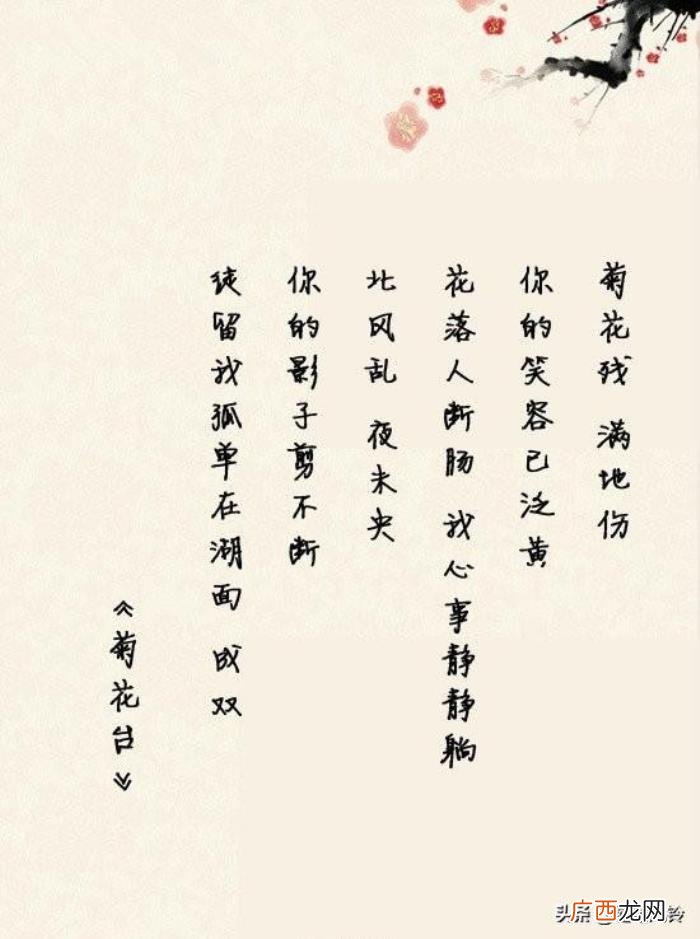 菊花残 满地伤
你的笑容已泛黄
花落人断肠 我心事静静躺
北风乱 夜未央
你的影子剪不断
徒留我孤单在湖面 成双
《菊花台》
头条
广西龙网
铃